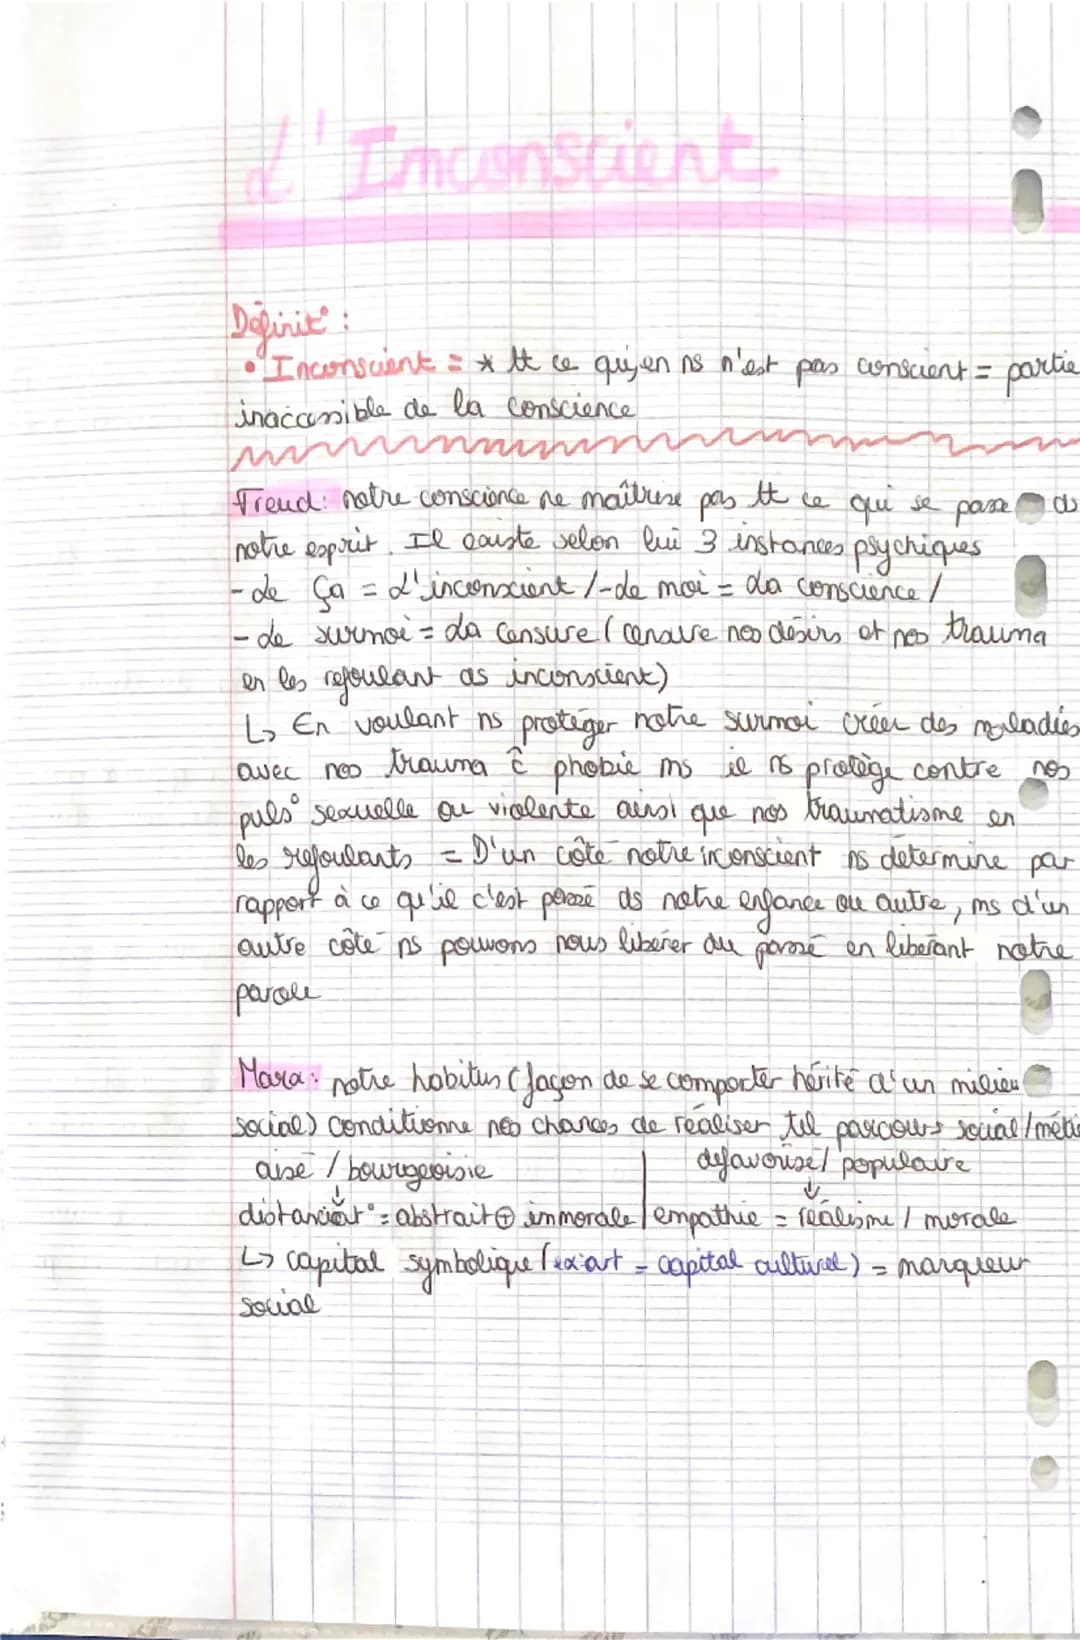 L'Inconscient
Définit° :
• Inconscient = * tt ce qui, en ns n'est pas conscient = partie
inaccessible de la conscience
Freud : notre conscience ne maîtrise pas tt ce qui se passe ds
notre esprit. Il existe selon lui 3 instances psychiques
- Le Ça = L'inconscient / - Le moi = La conscience /
- Le surmoi = La censure (censure nos désirs et nos trauma
en les refoulant ds inconscient)
↳ En voulant ns protéger notre surmoi créer des maladies
avec nos trauma ĉ phobie ms il ns protège contre nos
puls° sexuelle ou violente ainsi que nos traumatisme en
les refoulants = D'un côté notre inconscient ns détermine par
rapport à ce qu'il c'est passé ds notre enfance ou autre, ms d'un
autre côté ns pouvons nous libérer du passé en libérant notre
parole
Marx : notre habitus (façon de se comporter hérité d'un milieu
social) conditionne nos chances de réaliser tel parcours social/méti
aisé / bourgeoisie | défavorisé / populaire
↓ ↓
distanciat° = abstrait ⊕ immorale | empathie = réalisme / morale
↳ capital symbolique (ex: art = capital culturel) = marqueur
social